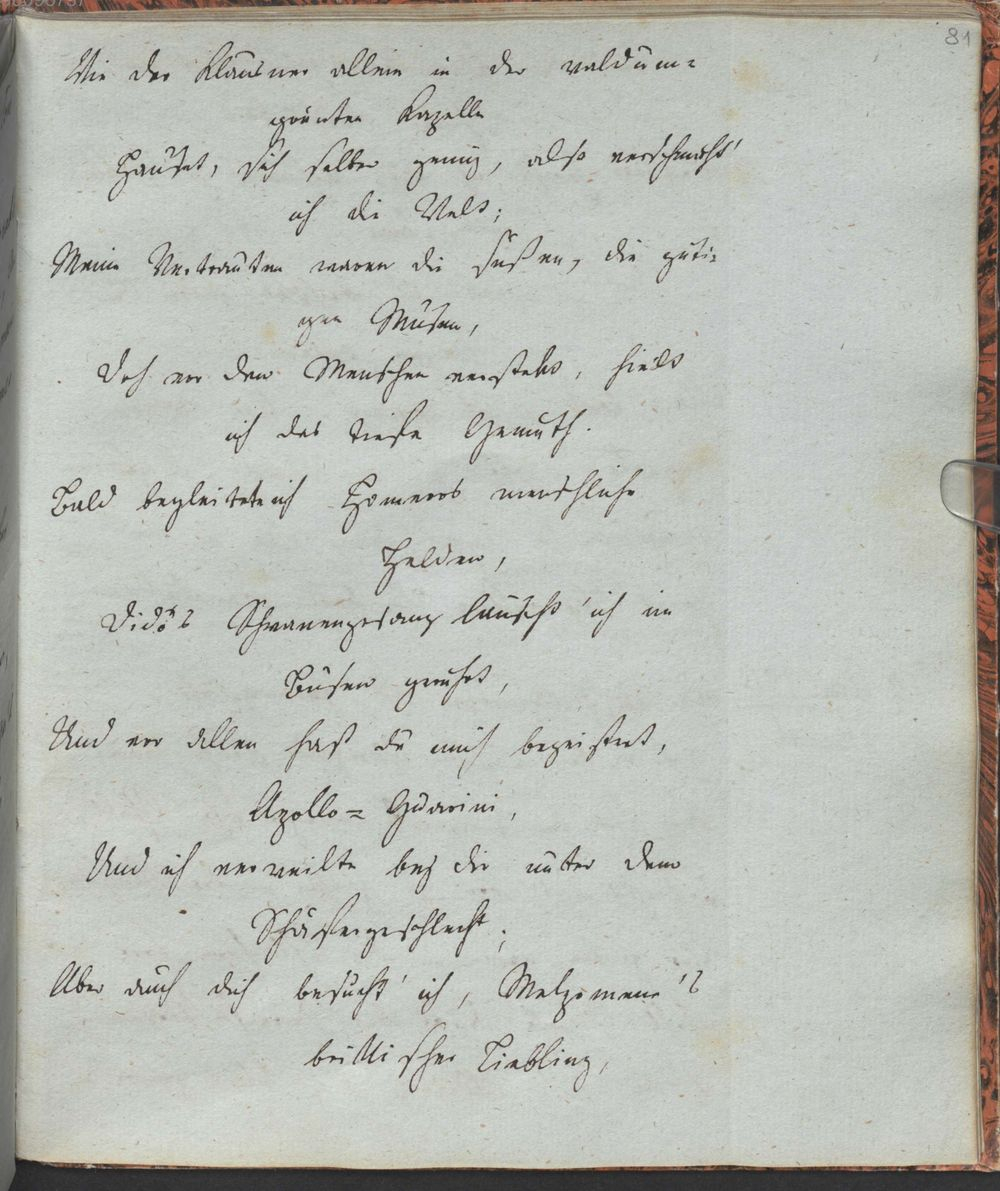 81
Wie der Klausner allein in der waldum=
grünten Kapelle
Hauset, sich selber genug, also verschmäht'
ich die Welt;
Meine Vertrauten waren die süßen, die güti=
gen Musen,
Doch vor den Menschen versteckt, hielt
ich das tiefe Gemüth.
Bald begleitete ich Homeros menschliche
Helden,
Dido's Schwanengesang lauscht' ich im
Busen gerührt,
Und vor allen hast du mich begeistert,
Apollo= Guarini,
Und ich verweilte bey dir unter dem
Schäfergeschlecht;
Aber durch dich besucht' ich, Melpomene's
brittischer Liebling,